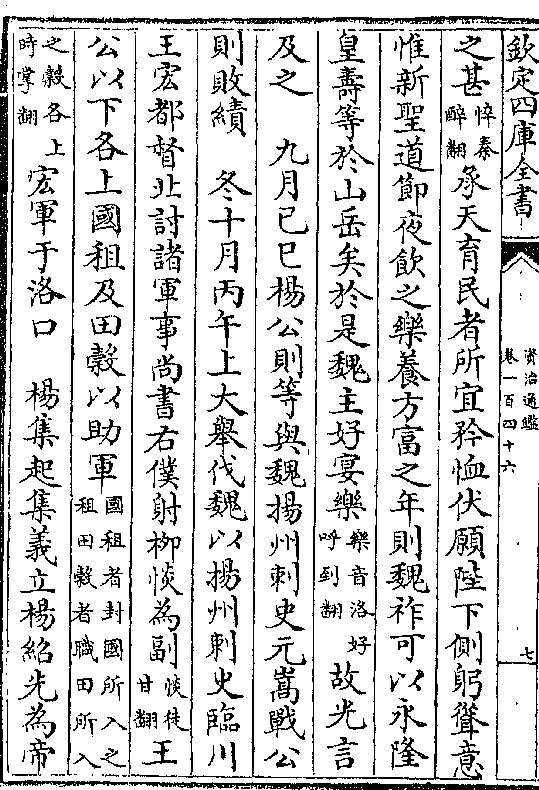 欽定四庫全書
資治通鑑
卷一百四十六
七
之甚悴秦醉翻承天育民者所宜矜恤伏願陛下側躬聳意
惟新聖道節夜飲之樂養方富之年則魏祚可以永隆
皇壽等於山岳矣於是魏主好宴樂樂音洛好呼到翻故光言
及之　九月己巳楊公則等與魏揚州刺史元嵩戰公
則敗績　冬十月丙午上大舉伐魏以揚州刺史臨川
王宏都督北討諸軍事尚書右僕射柳惔為副惔徒甘翻王
公以下各上國租及田穀以助軍國租者封國所入之租田穀者職田所入
之穀各上時掌翻宏軍于洛口　楊集起集義立楊紹先為帝